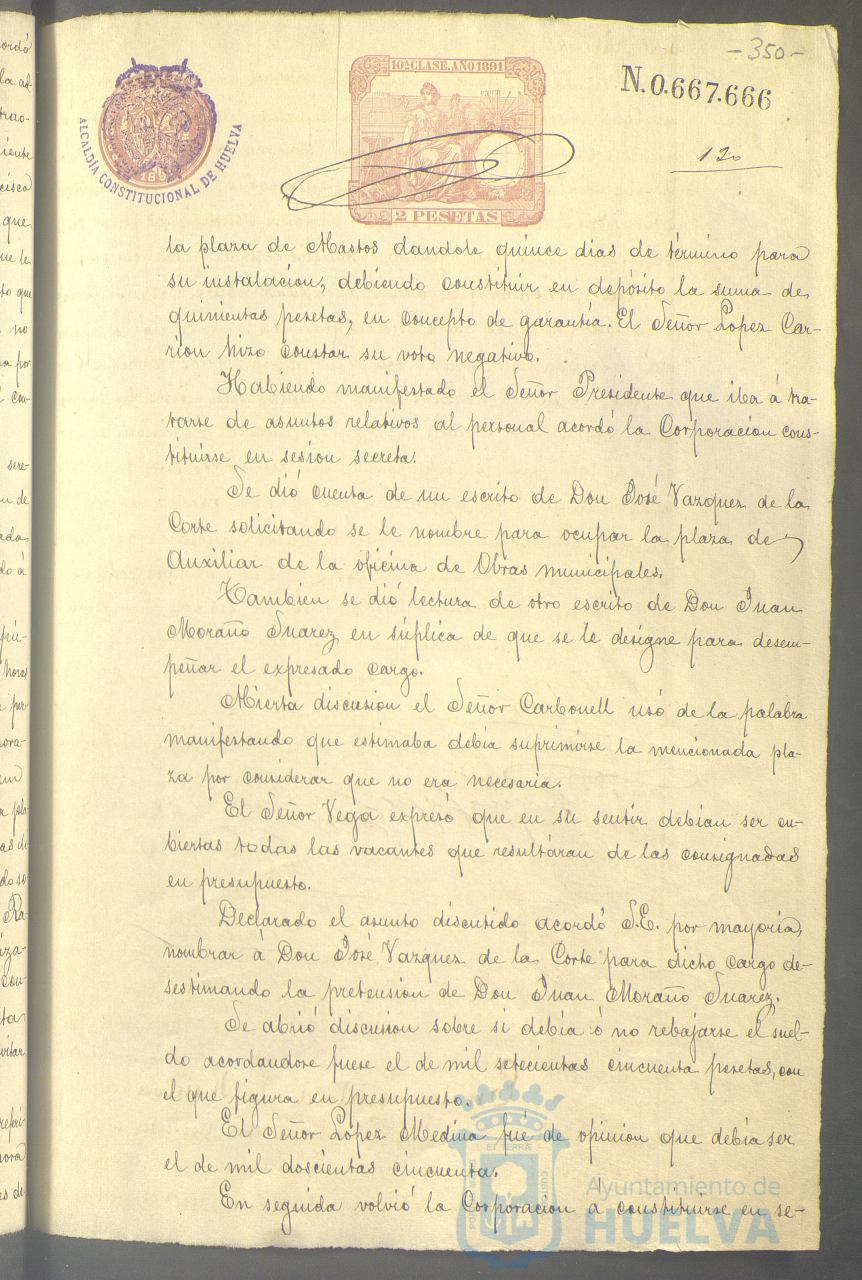 -350-
10ª CLASE. AÑO 1891
N.0.667.666
ALCALDÍA CONSTITUCIONAL DE HUELVA
189
120
2 PESETAS
la plaza de Mastos dandole quince dias de término para
su instalacion, debiendo constituir en depósito la suma de
quinientas pesetas, en concepto de garantía. El Señor Lopez Car-
rion hizo constar su voto negativo.
Habiendo manifestado el Señor Presidente que iba á tra-
tarse de asuntos relativos al personal acordó la Corporacion cons-
tituirse en sesion secreta.
Se dió cuenta de un escrito de Don José Vazquez de la
Corte solicitando se le nombre para ocupar la plaza de
Auxiliar de la oficina de Obras municipales.
Tambien se dió lectura de otro escrito de Don Juan
Moraño Suarez en súplica de que se le designe para desem-
peñar el expresado cargo.
Abierta discusion el Señor Carbonell usó de la palabra
manifestando que estimaba debía suprimirse la mencionada pla-
za por considerar que no era necesaria.
El Señor Vega expresó que en su sentir debían ser cu-
biertas todas las vacantes que resultáran de las consignadas
en presupuesto.
Declarado el asunto discutido acordó S.E. por mayoría,
nombrar á Don José Vazquez de la Corte para dicho cargo de-
sestimando la pretension de Don Juan Moraño Suarez.
Se abrió discusion sobre si debía ó no rebajarse el suel-
do acordandose fuese el de mil setecientas cincuenta pesetas, con
el que figura en presupuesto.
El Señor López Medina fué de opinion que debía ser
el de mil doscientas cincuenta.
En seguida volvió la Corporacion á constituirse en se-
Ayuntamiento de
HUELVA